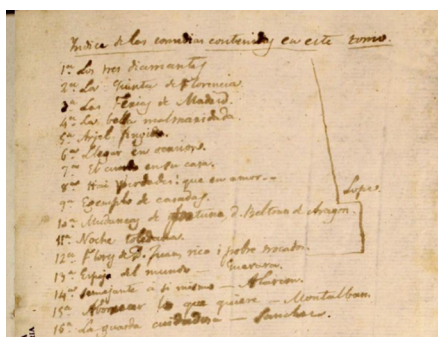 Indice de las comedias contenidas en este tomo.
1ª Los tres diamantes
2ª La Quinta de Florencia.
3ª Las Ferias de Madrid.
4ª La bella malmaridada.
5ª Arjel fingido.
6ª Llegar en ocasion.
7ª El cuerdo en su casa.
8ª Hai verdades que en amor..
9ª Ejemplo de casadas.
10ª Mudanzas de fortuna, D. Beltran de Aragon.
Lope.
11ª Noche toledana.
12ª Flores de D. Juan, rico i pobre trocados.
13ª Espejo del mundo — Guevara.
14ª Semejante a si mismo — Alarcon.
15ª Aborrecer lo que quiere — Montalban.
16ª La guarda cuidadosa — Sanchez.